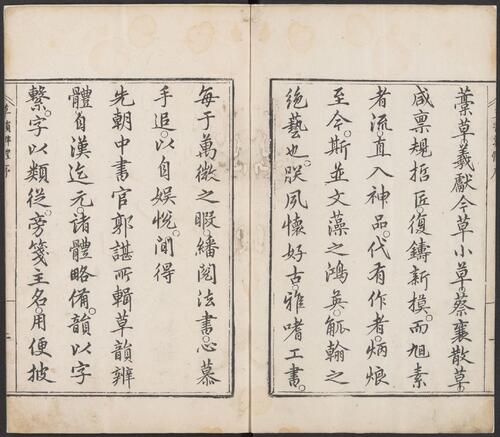 藁草羲獻今草小草蔡襄散草
咸禀規括匠復鑄新摸而旭素
者流直入神品代有作者炳烺
至今斯並文藻之鴻英觚翰之
絶藝也朕夙懷好古雅嗜工書
每于萬㣲之暇繙閱法書心慕
手追以自娱悅閒得
先朝中書官郭諶所輯草韻辨
體自漢迄元諸體略備韻以字
繫字以類從旁箋主名用便披
草韻辨體序